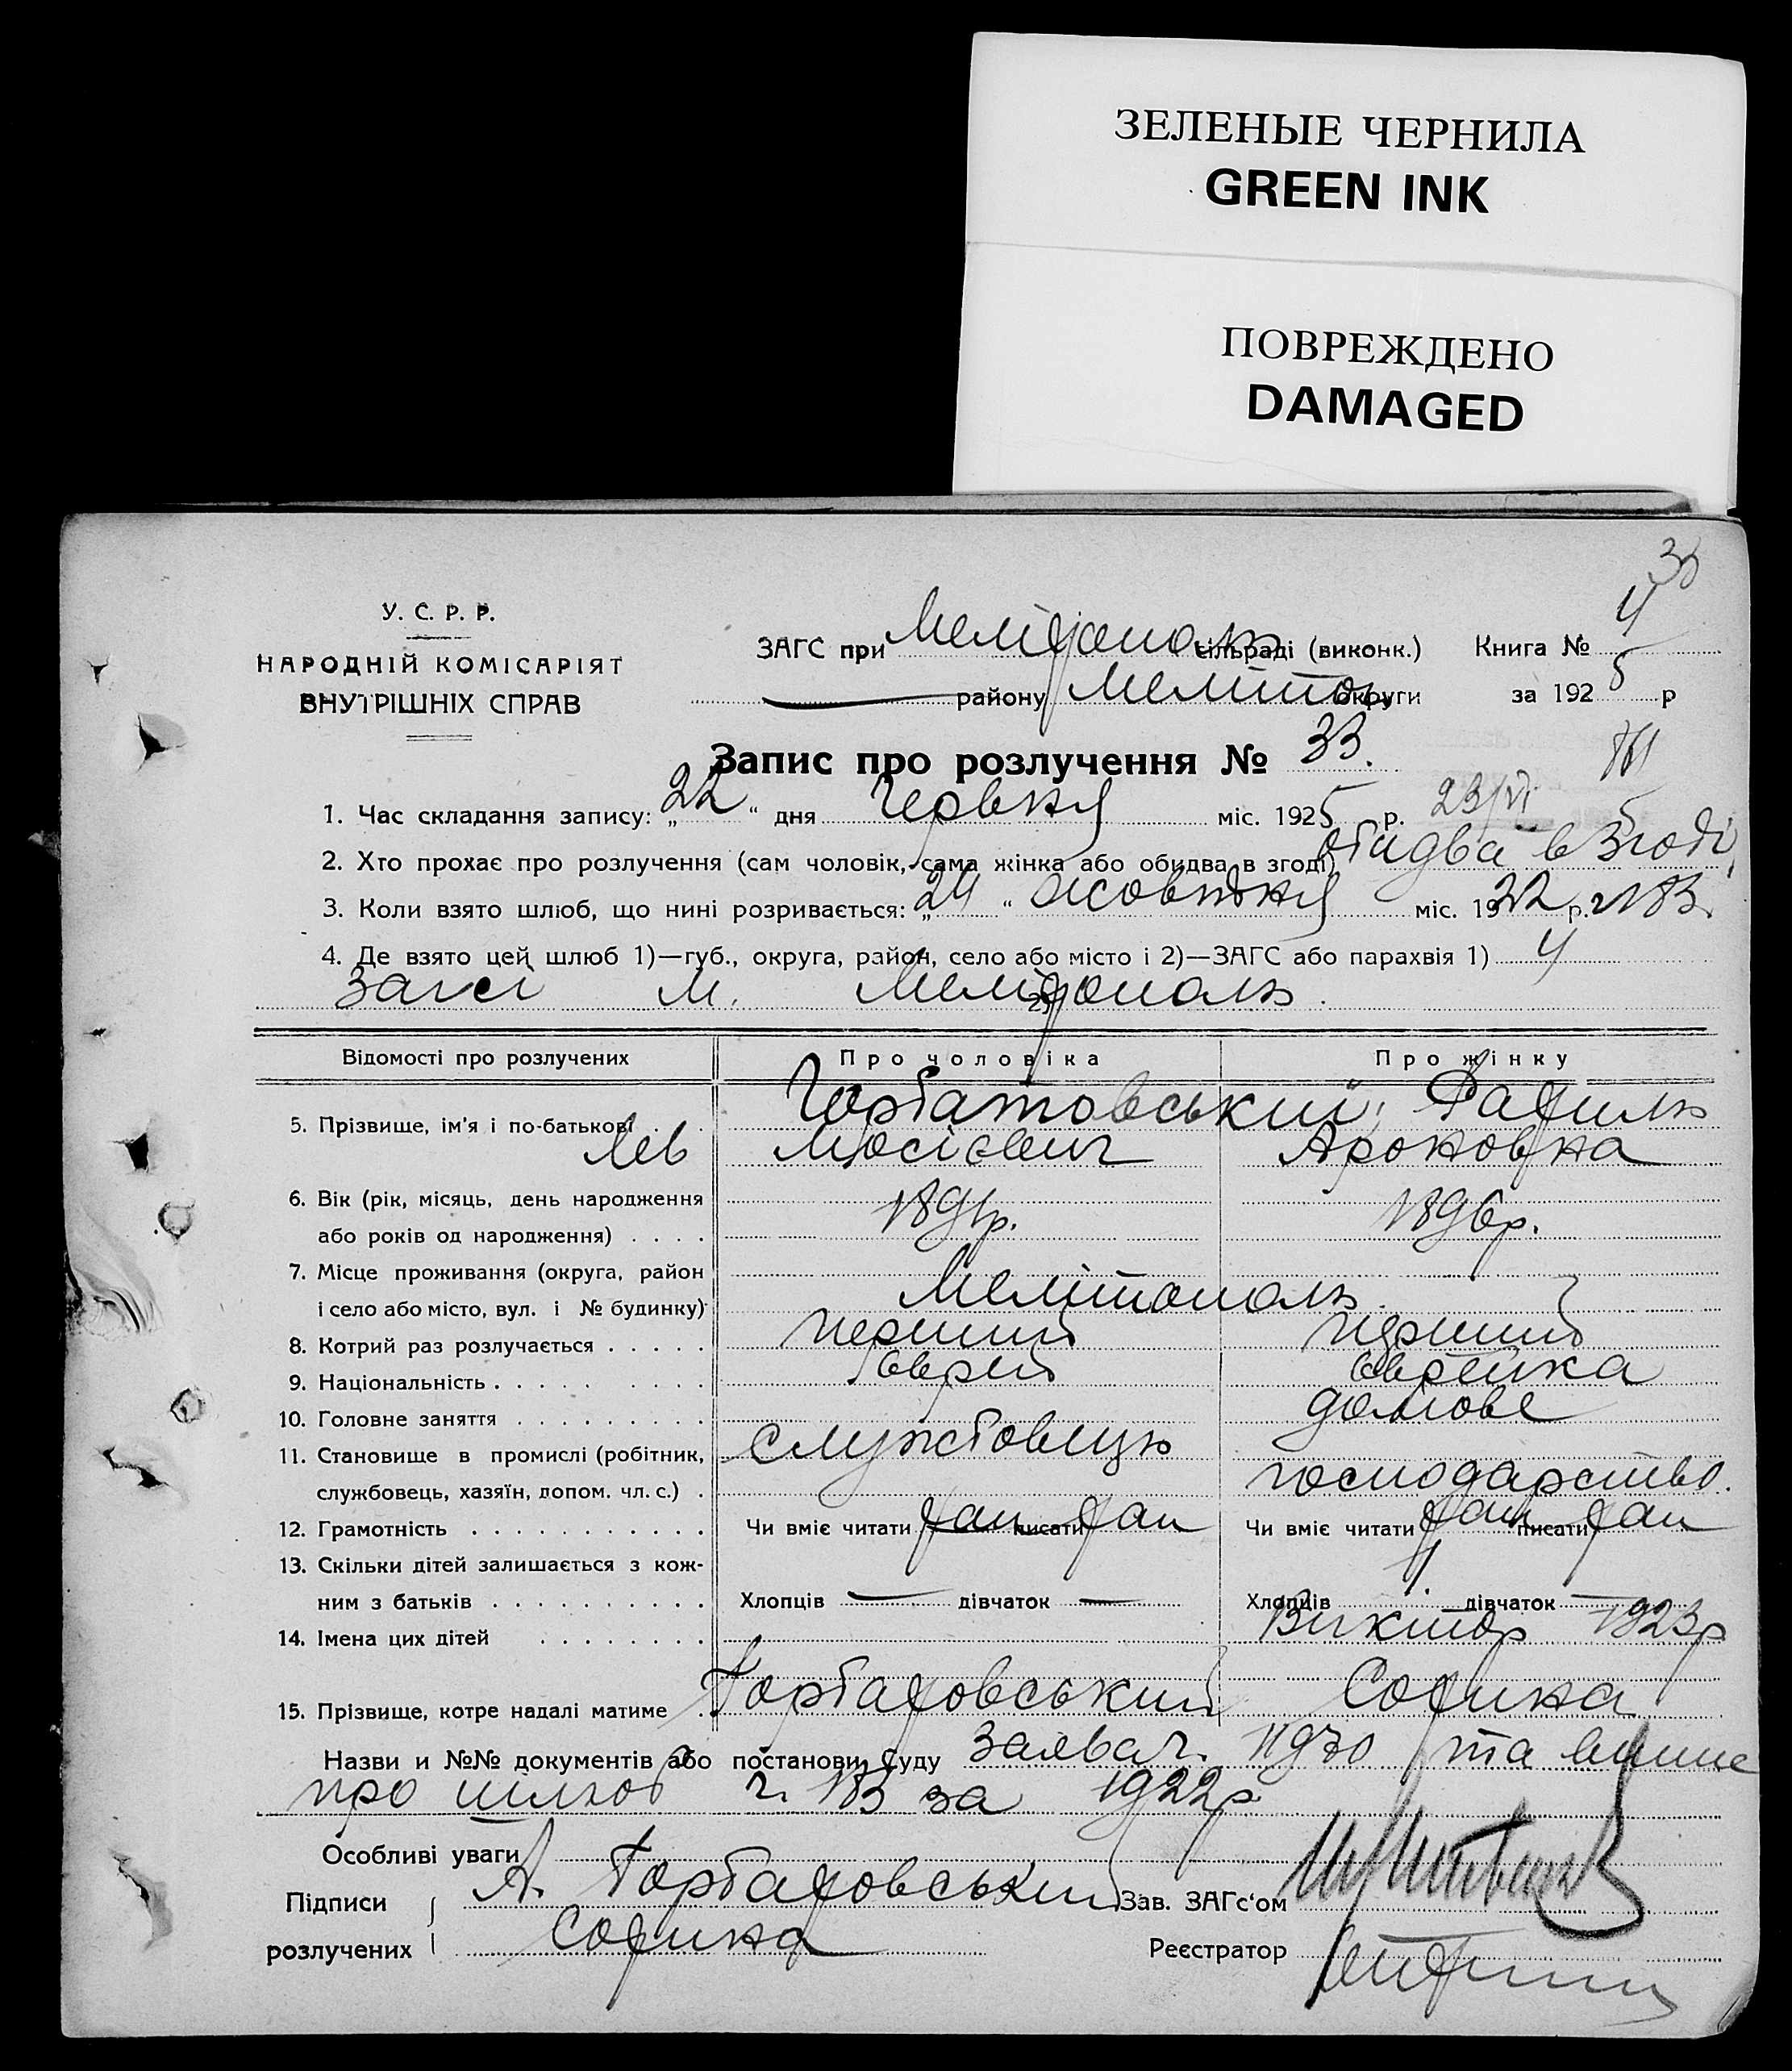 ЗЕЛЕНЫЕ ЧЕРНИЛА
GREEN INK
ПОВРЕЖДЕНО
DAMAGED
У. С. Р. Р.
НАРОДНІЙ КОМІСАРІЯТ
ВНУТРІШНІХ СПРАВ
ЗАГС при Мелітополь сільраді (виконк.) Книга № 4
району Мелітоп. округи за 1925 р
Запис про розлучення № 33.
1. Час складання запису: „22“ дня Червня міс. 1925 р. 23/VI
2. Хто прохає про розлучення (сам чоловік, сама жінка або обидва в згоді) обидва в згоді
3. Коли взято шлюб, що нині розривається: „24“ жовтня міс. 1922 р. ч 183.
4. Де взято цей шлюб 1)—губ., округа, район, село або місто і 2)—ЗАГС або парахвія 1) У
Загсі м. Мелітополь.
Відомості про розлучених Про чоловіка Про жінку
5. Прізвище, ім'я і по-батькові Горбатовський, Рахиль
Лев Мосієвич Ароновна
6. Вік (рік, місяць, день народження
або років од народження) 1891р. 1896р.
7. Місце проживання (округа, район
і село або місто, вул. і № будинку) Мелітополь
8. Котрий раз розлучається перший перший
9. Національність єврей єврейка
10. Головне заняття домове
11. Становище в промислі (робітник, службовець
службовець, хазяїн, допом. чл. с.) господарство.
12. Грамотність Чи вміє читати так писати так Чи вміє читати так писати так
13. Скільки дітей залишається з кож-
ним з батьків Хлопців — дівчаток — Хлопців 1 дівчаток —
14. Імена цих дітей Виктор 1923р
15. Прізвище, котре надалі матиме Горбатовський Сорина
Назви и №№ документів або постанови Суду заява ч. та
про шлюб ч. 183 за 1922р
Особливі уваги
Підписи Горбатовський Зав. ЗАГс'ом
розлучених Сорина Реєстратор